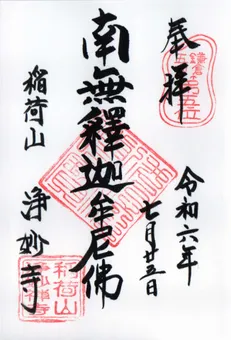 奉拝
令和六年
七月廿五日
南無釋迦牟尼佛
稲荷山
浄妙寺
稲荷山